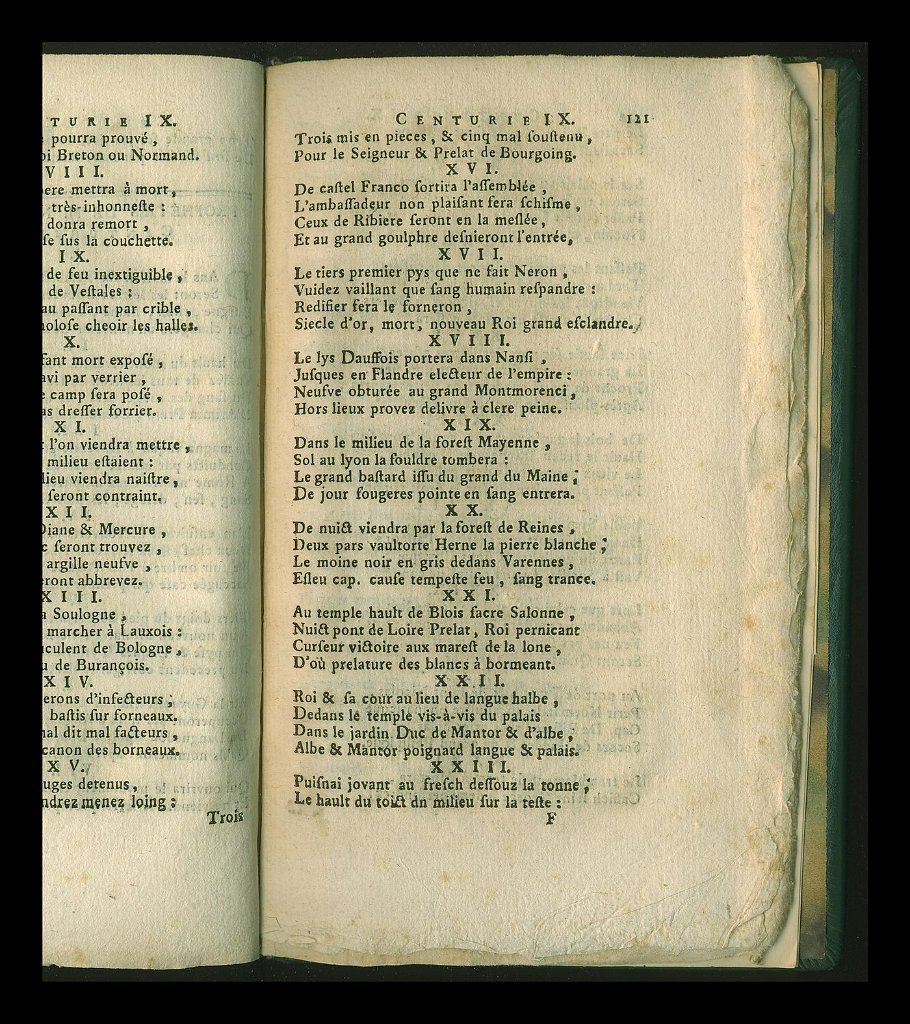 TURIE IX.
pourra prouvé ,
oi Breton ou Normand.
VIII.
ere mettra à mort ,
très-inhonneſte :
donra remort ,
ſe ſus la couchette.
IX.
de feu inextiguible ,
de Veſtales :
au paſſant par crible ,
holoſe cheoir les halles.
X.
fant mort expoſé ,
avi par verrier ,
camp ſera poſé ,
as dreſſer forrier.
XI.
l'on viendra mettre ,
milieu eſtaient :
lieu viendra naiſtre ,
ſeront contraint.
XII.
Diane & Mercure ,
c ſeront trouvez ,
argille neufve ,
ront abbrevez.
XIII.
a Soulogne ,
marcher à Lauxois :
culent de Bologne ,
u de Burançois.
XIV.
erons d'infecteurs ;
baſtis ſur forneaux.
mal dit mal facteurs ,
canon des borneaux.
XV.
uges detenus ,
ndrez menez loing :
Trois
CENTURIE IX. 121
Trois mis en pieces , & cinq mal ſouſtenu ,
Pour le Seigneur & Prelat de Bourgoing.
XVI.
De caſtel Franco ſortira l'aſſemblée ,
L'ambaſſadeur non plaiſant ſera ſchiſme ,
Ceux de Ribiere ſeront en la meſlée ,
Et au grand goulphre deſnieront l'entrée ,
XVII.
Le tiers premier pys que ne fait Neron ,
Vuidez vaillant que ſang humain reſpandre :
Redifier ſera le forneron ,
Siecle d'or, mort , nouveau Roi grand eſclandre.
XVIII.
Le lys Dauffois portera dans Nanſi ,
Juſques en Flandre electeur de l'empire :
Neufve obturée au grand Montmorenci ,
Hors lieux provez delivre à clere peine.
XIX.
Dans le milieu de la foreſt Mayenne ,
Sol au lyon la fouldre tombera :
Le grand baſtard iſſu du grand du Maine ;
De jour fougeres pointe en ſang entrera.
XX.
De nuict viendra par la foreſt de Reines ,
Deux pars vaultorte Herne la pierre blanche ;
Le moine noir en gris dedans Varennes ,
Eſleu cap. cauſe tempeſte feu , ſang trance.
XXI.
Au temple hault de Blois ſacre Salonne ,
Nuict pont de Loire Prelat , Roi pernicant
Curſeur victoire aux mareſt de la lone ,
D'où prelature des blancs à bormeant.
XXII.
Roi & ſa cour au lieu de langue halbe ,
Dedans le temple vis-à-vis du palais
Dans le jardin Duc de Mantor & d'albe ,
Albe & Mantor poignard langue & palais.
XXIII.
Puiſnai jovant au freſch deſſouz la tonne ;
Le hault du toict dn milieu ſur la teſte :
F